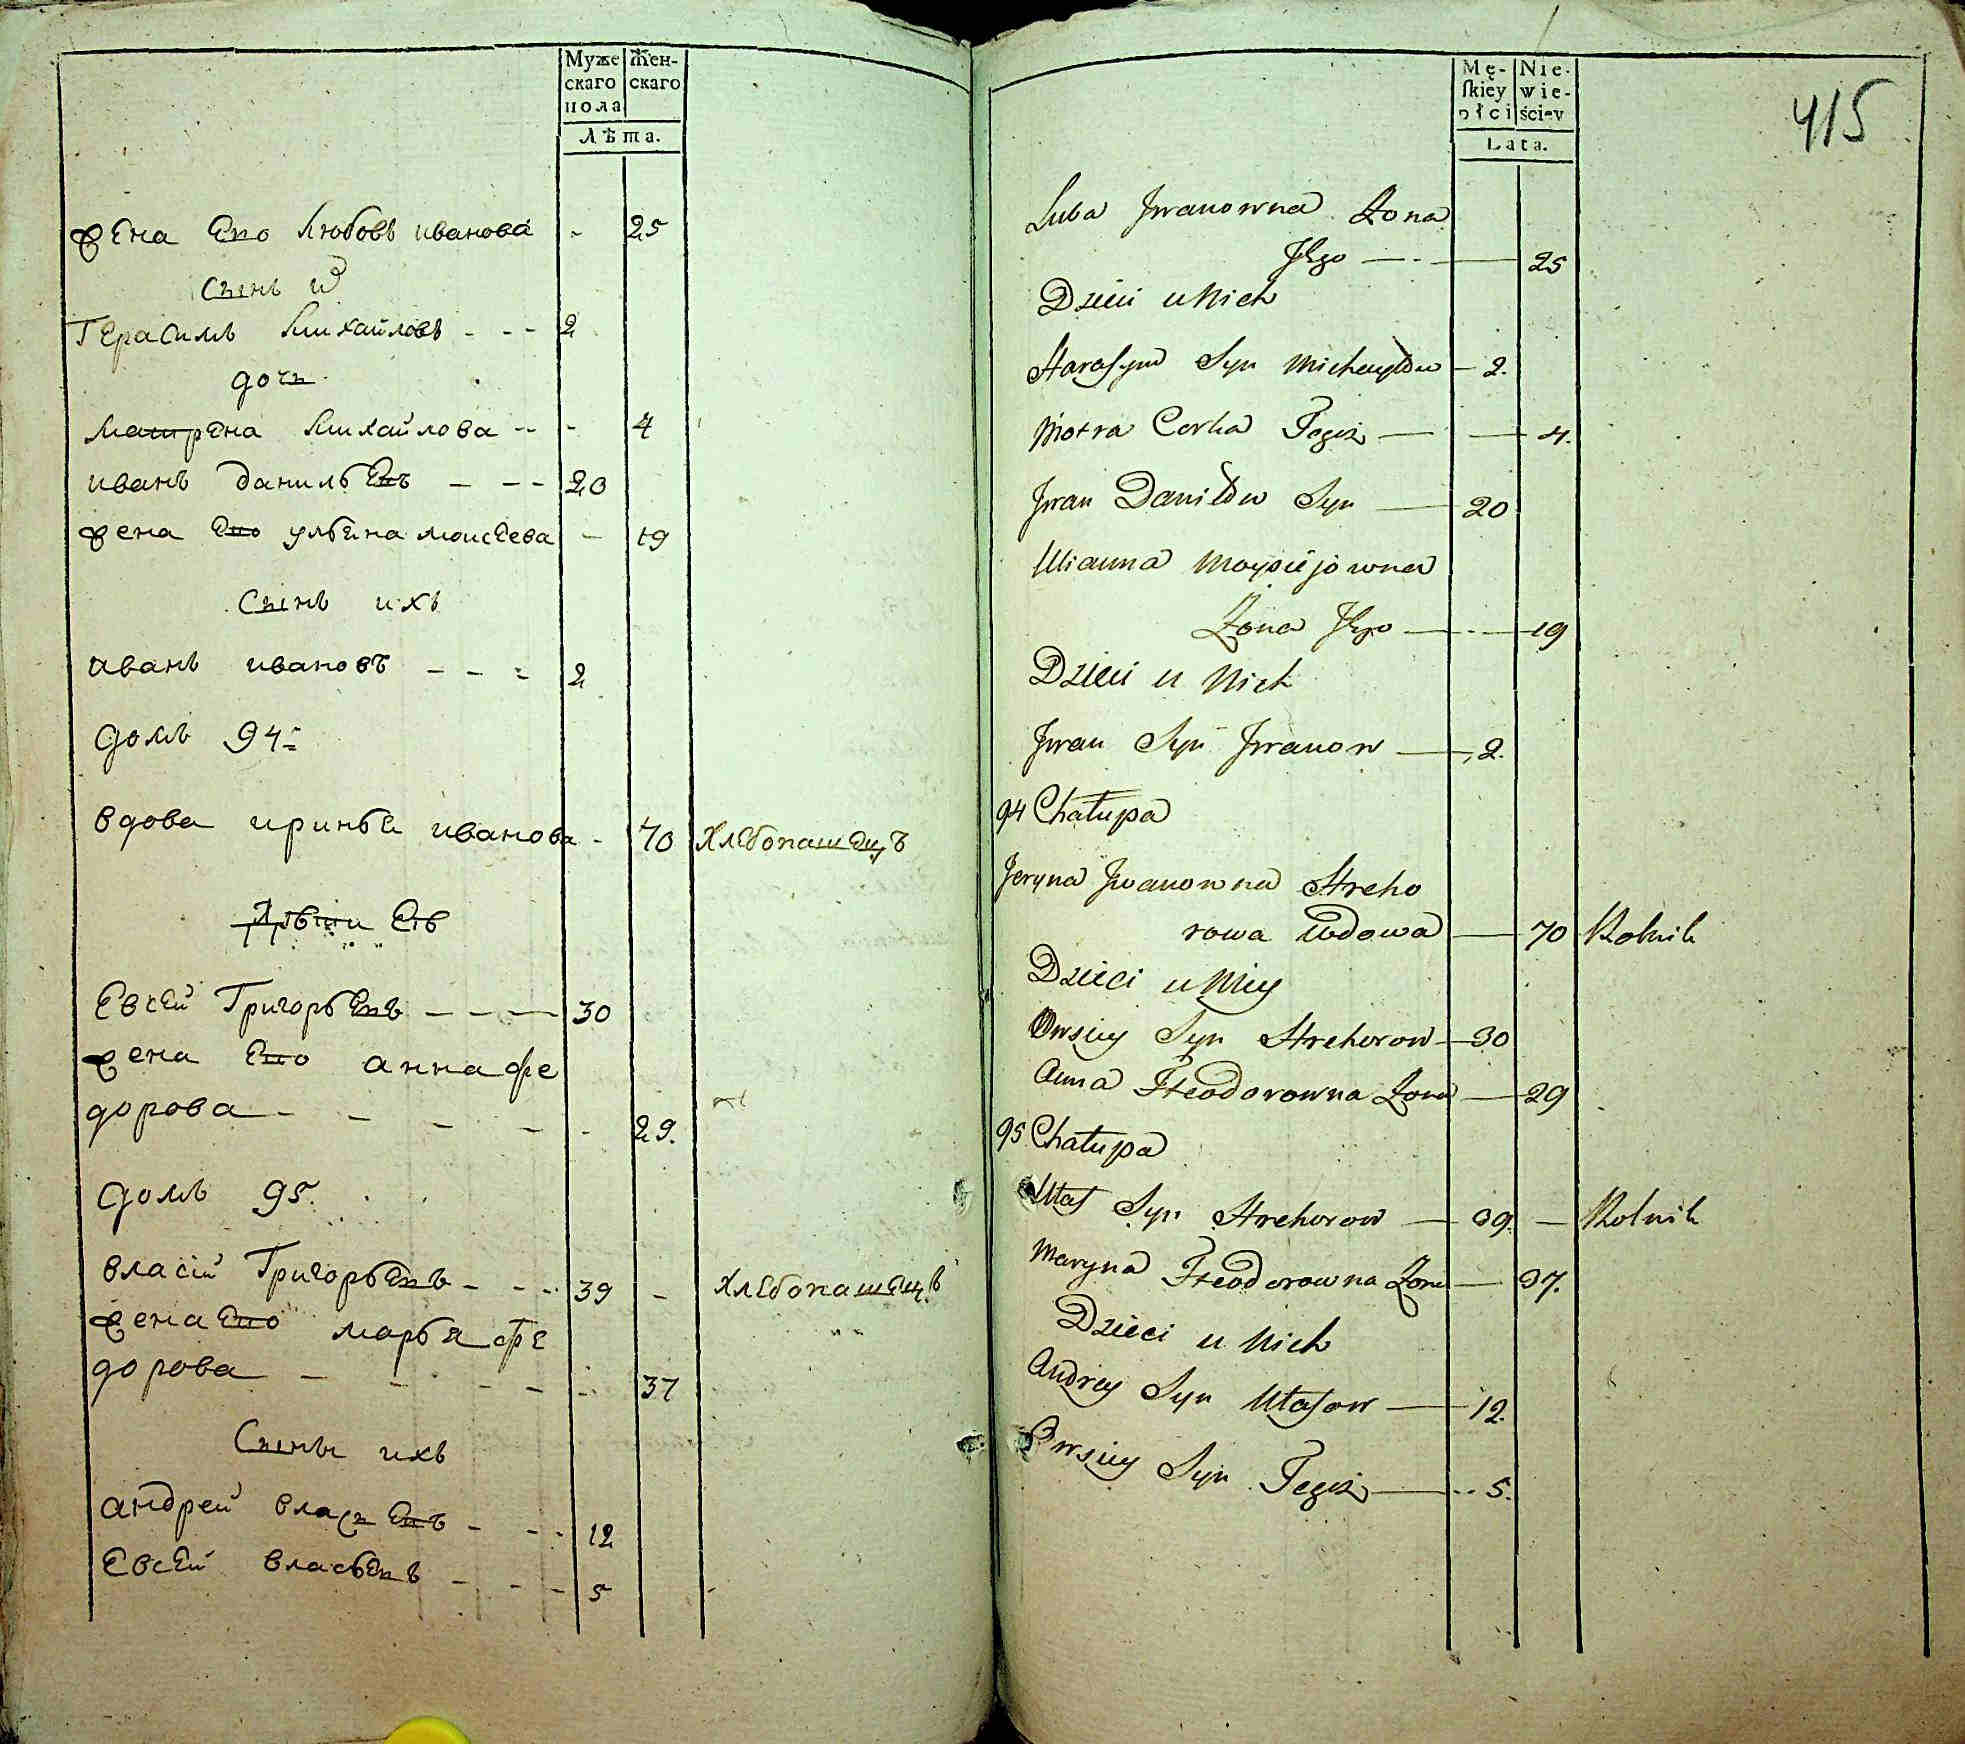 Муже Жен-
скаго скаго
пола
Лѣта.
жена Его Любовь иванова - 25
Сынъ
Герасимъ михайловъ - - - 2
дочь
матрена михайлова - - - 4
иванъ данильевъ - - - 20
жена Его ульяна моисеева - 19
Сынъ ихъ
иванъ ивановъ - - - 2
домъ 94
вдова иринья иванова - 70 Хлебопашецъ
Дѣти Ея
Евсей Григорьевъ - - - 30
жена Его анна фе
дорова - - - - - 29.
домъ 95.
власій Григорьевъ - - - 39 - Хлебопашецъ
жена Его марья фе
дорова - - - - - 37
Сыны ихъ
андрей власьевъ - - - 12
Евсей власьевъ - - - 5
Mę- Nie-
skiey wie-
płci ściey
Lata.
415
Luba Jwanowna Zona
Jego — 25
Dzieci u Nich
Harasym Syn Michayłow — 2.
Motra Corka Tegoż — 4.
Jwan Daniłow Syn — 20
Ulianna Moysiejowna
Zona Jego — 19
Dzieci u Nich
Jwan Syn Jwanow — 2.
94 Chałupa
Jeryna Jwanowna Hreho
rowa Wdowa — 70 Rolnik
Dzieci u Niey
Owsiey Syn Hrehorow — 30
Anna Fteodorowna Zona — 29
95 Chałupa
Ułas Syn Hrehorow — 39 — Rolnik
Maryna Fteodorowna Zona — 37.
Dzieci u Nich
Andrey Syn Ułasow — 12.
Owsiey Syn Tegoż — 5.